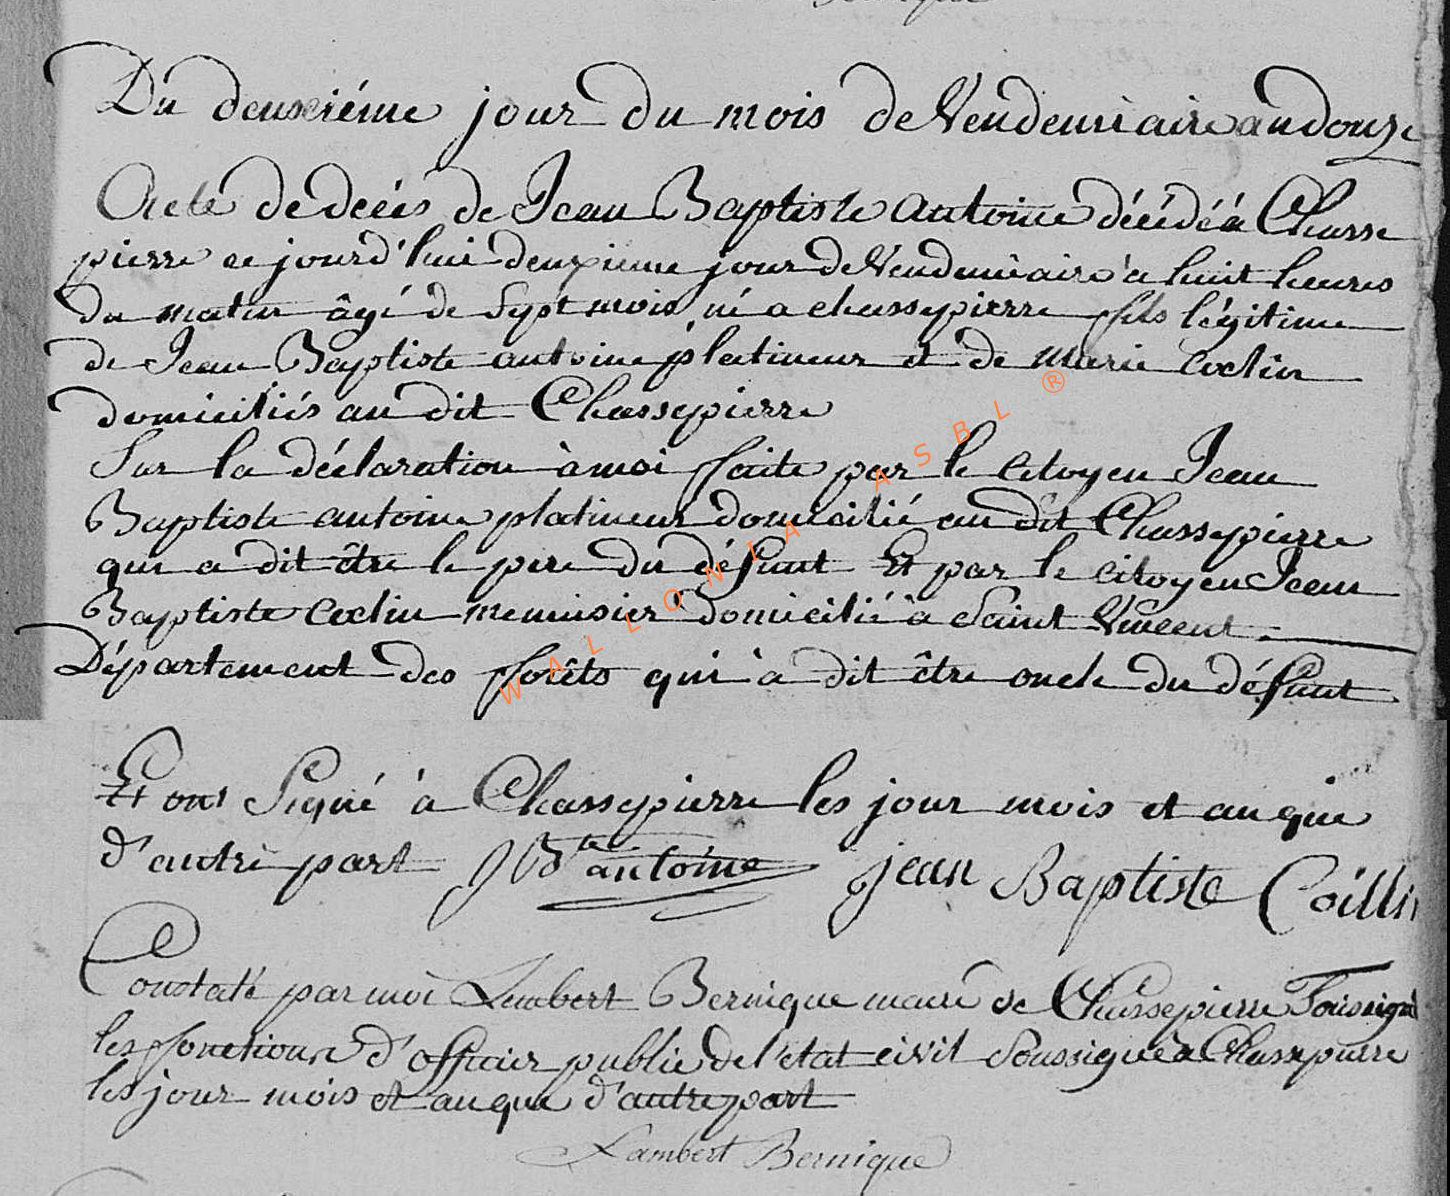 Du deuxiéme jour du mois de Vendemiaire an douze
Acte de decés de Jean Baptiste antoine décédé à Chasse
pierre ce jourd'hui deuxieme jour de Vendemiaire à huit heures
du matin âgé de Sept mois né a chassepierre fils légitime
de Jean Baptiste antoine platineur et de Marie Coclin
domiciliés au dit Chassepierre
Sur la déclaration à moi faite par le citoyen Jean
Baptiste antoine platineur domicilié au dit Chassepierre
qui a dit être le pere du défunt Et par le citoyen Jean
Baptiste Coclin menuisier domicilié à Saint Vincent
Département des forêts qui à dit être oncle du défunt
Et ont Signé à Chassepierre les jour mois et an que
d'autre part JBte antoine jean Baptiste Coillin
Constaté par moi Lambert Bernique maire de Chassepierre
les fonctions d'officier public de l'état civil Soussigné à Chassepierre
les jour mois et an que d'autre part
Lambert Bernique
WALLONIA ASBL ®